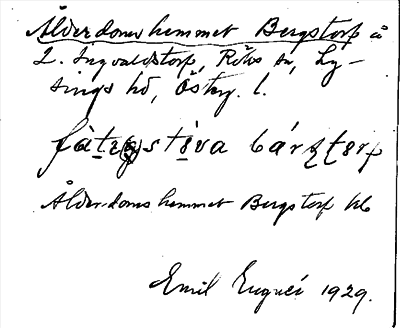 Ålderdomshemmet Bergstorp å
L. Ingvaldstorp, Röks sn, Ly-
sings hd, Österg. l.
fàti stíva bárstorp
Ålderdomshemmet Bergstorp
Emil 1929.